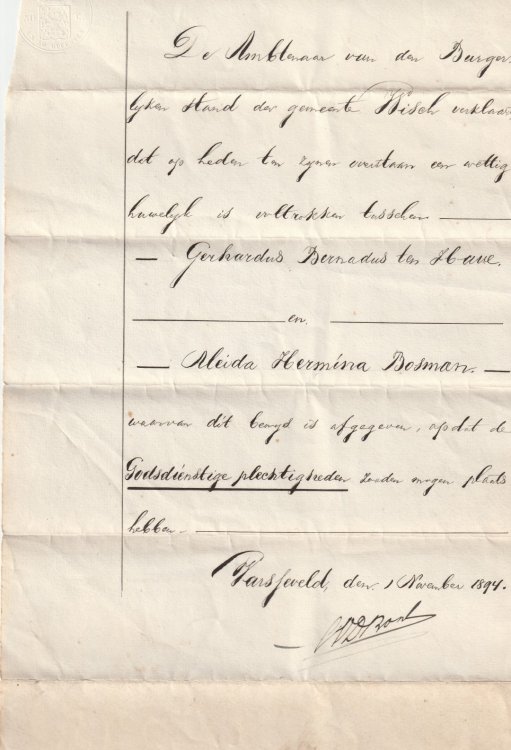 De Ambtenaar van den Burger-
lijken Stand der gemeente Wisch verklaart
dat op heden ten zijnen overstaan een wettig
huwelijk is voltrokken tusschen
Gerhardus Bernadus ten Have.
en
Aleida Hermina Bosman.
waarvan dit bewijs is afgegeven, opdat de
Godsdienstige plechtigheden zouden mogen plaats
hebben.
Varsseveld, den 1 November 1894.